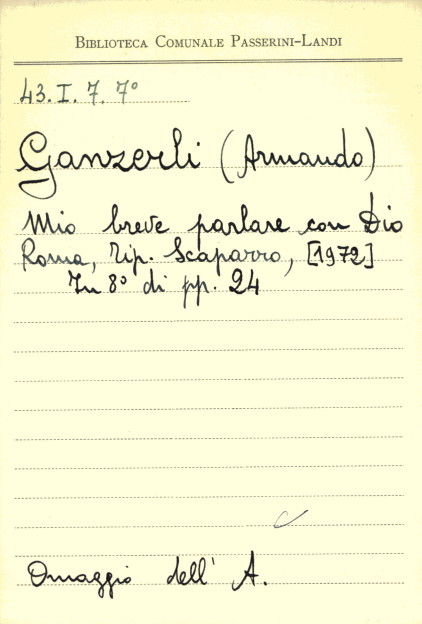 BIBLIOTECA COMUNALE PASSERINI-LANDI
43. I. 7. 7º
Ganzerli (Armando)
Mio breve parlare con Dio
Roma, Tip. Scaparro, [1972]
In 8º di pp. 24
Omaggio dell' A.